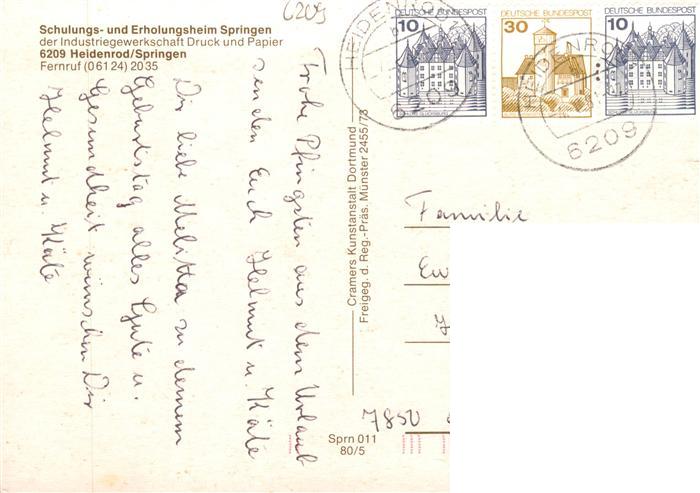 6209
Schulungs- und Erholungsheim Springen
der Industriegewerkschaft Druck und Papier
6209 Heidenrod/Springen
Fernruf (06124) 2035
Frohe Pfingsten aus dem Urlaub
senden Euch Helmut u. Käte
Dir liebe Melitta zu deinem
Geburtstag alles Gute u.
Gesundheit wünschen Dir
Helmut u. Käte
Cramers Kunstanstalt Dortmund
Freigeg. d. Reg.-Präs. Münster 2455/73
Sprn 011
80/5
DEUTSCHE BUNDESPOST
10
DEUTSCHE BUNDESPOST
30
DEUTSCHE BUNDESPOST
10
HEIDENROD
6209
HEIDENROD
6209
Familie
Ew
7850